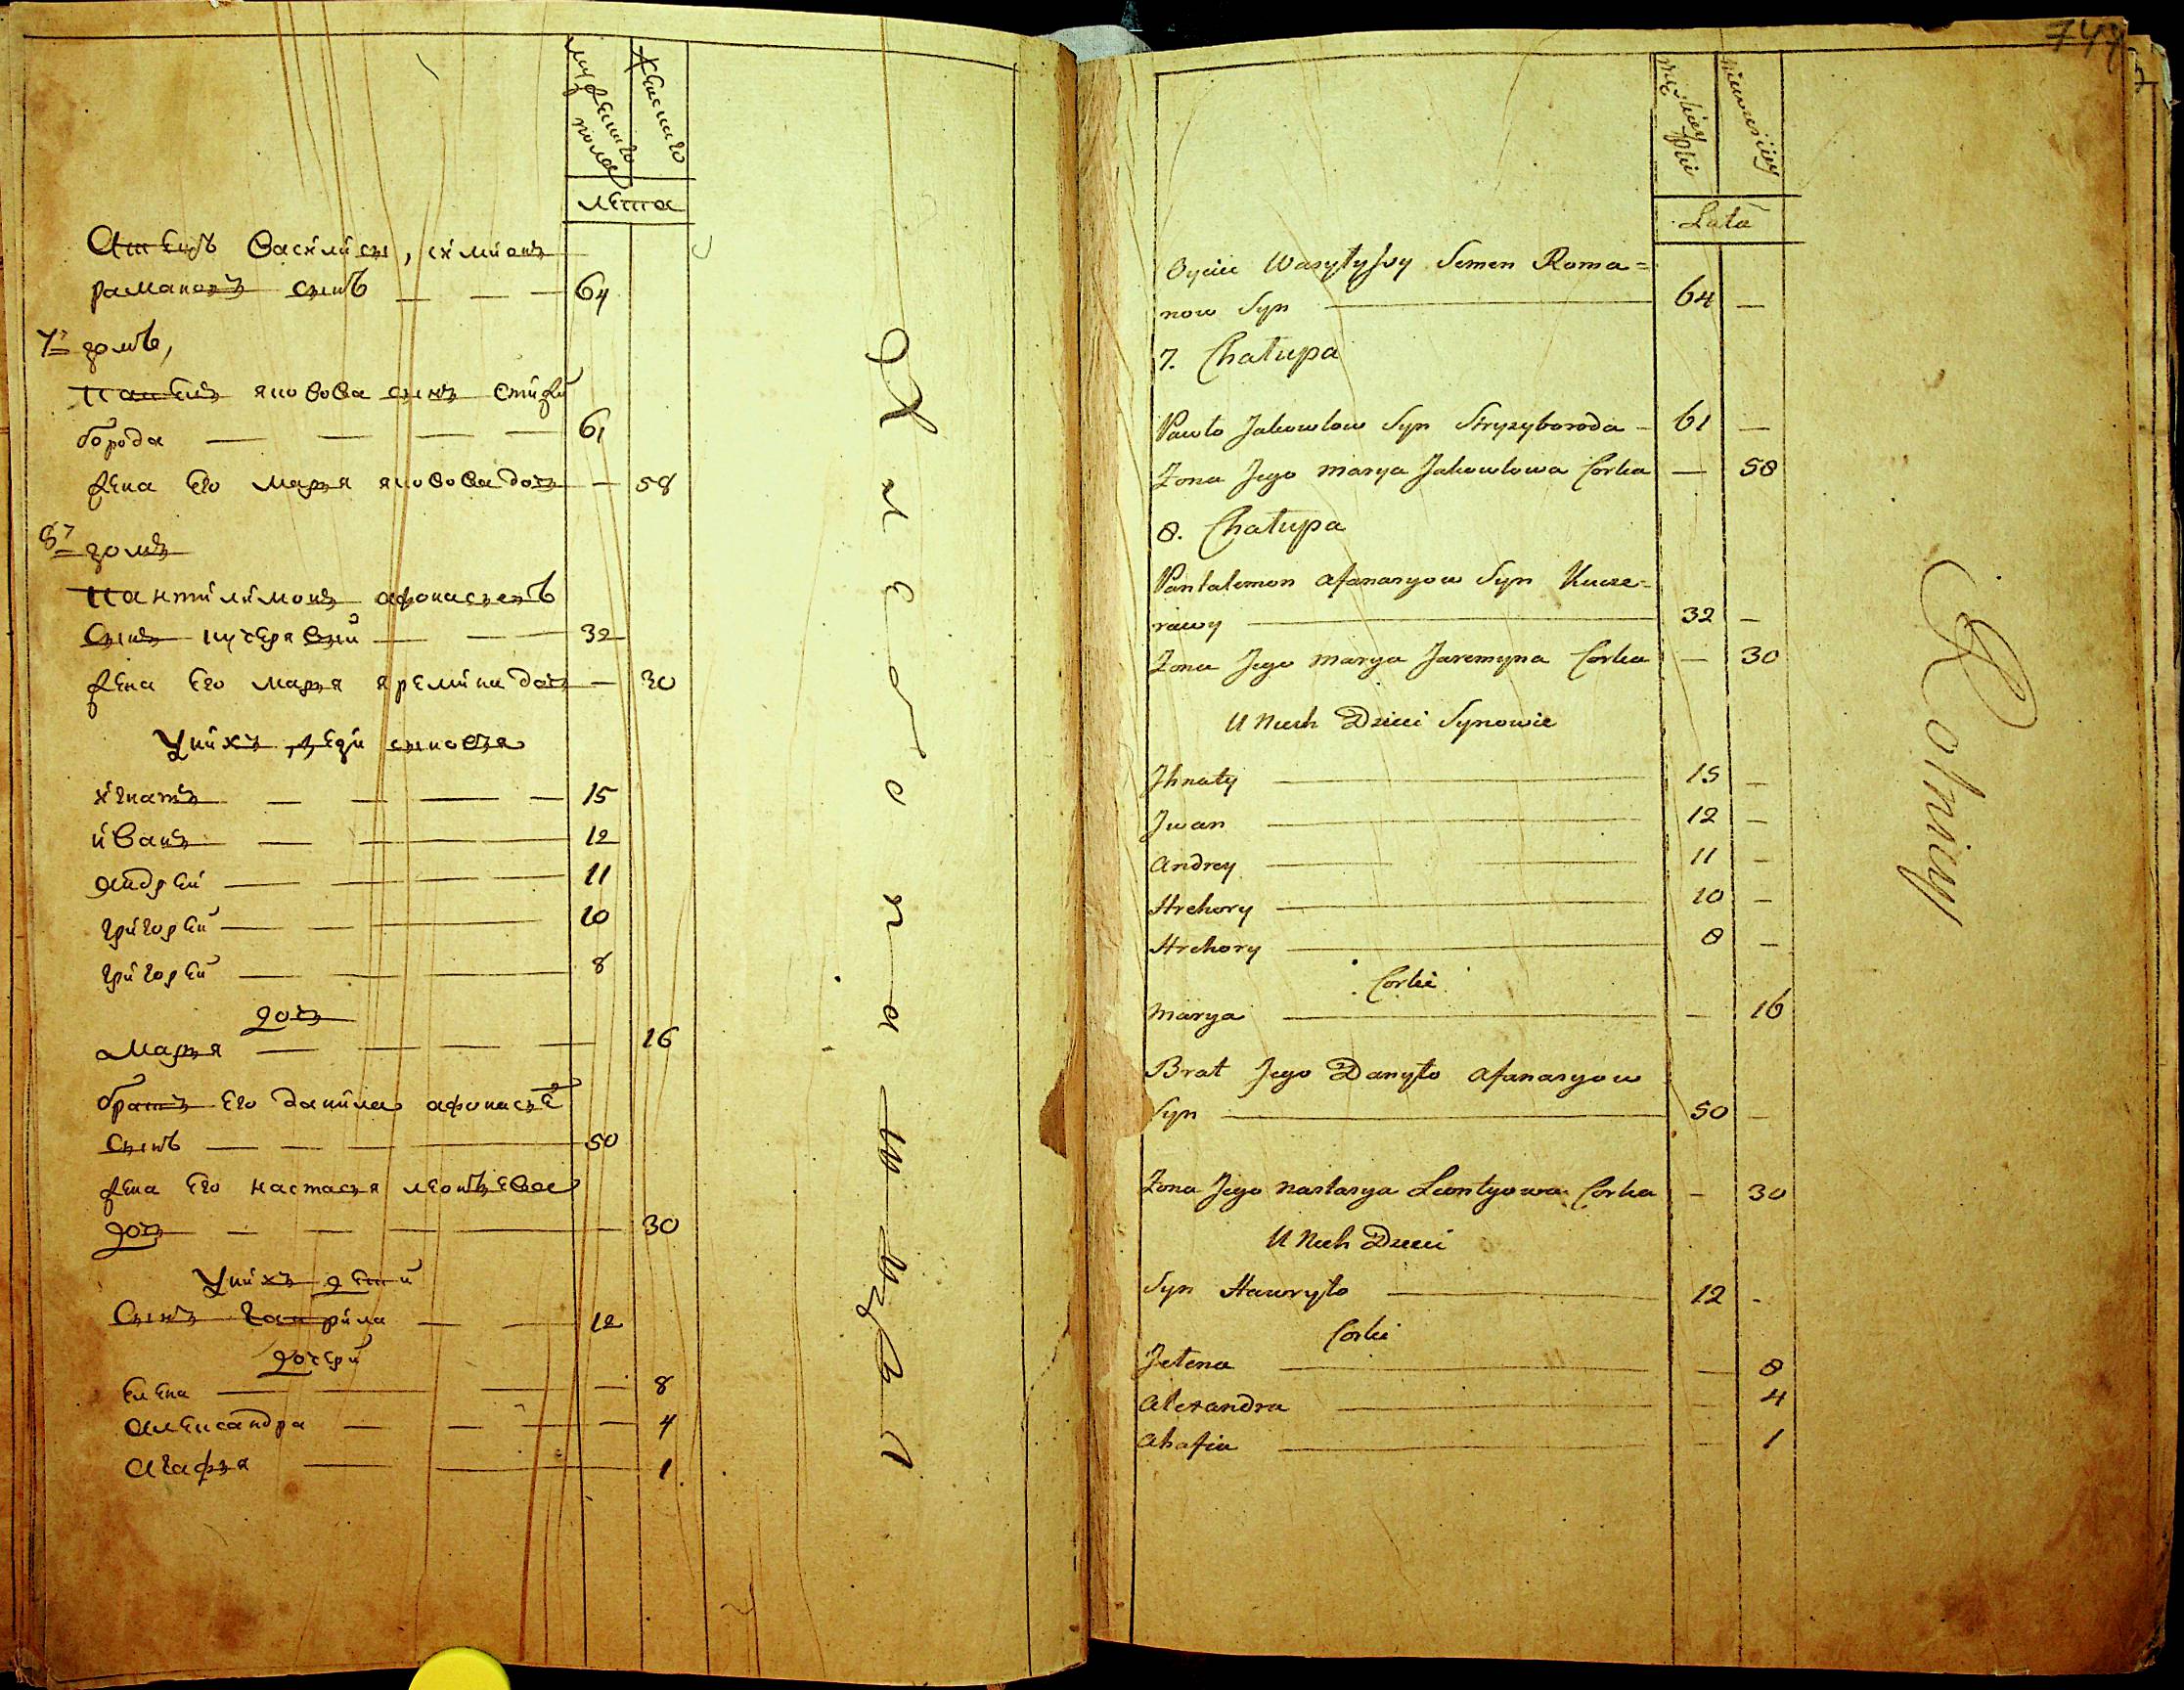 мужеска пола
женска
лета
Атецъ Василисы, симионъ
рамановъ сынъ — — — 64
7й домъ,
павелъ яковова сынъ стриже
борода — — — — 61
жена его марья яковова доч — 58
8й домъ
пантилимонъ афонасьевъ
сынъ кучерявый — — 32
жена его марья яремина доч — 30
У них дети сыновья
игнатъ — — — — 15
иванъ — — 12
андрей — — 11
григорей — — 10
григорей — — 8
доч
марья — — — — 16
братъ его данила афонасье
сынъ — — — — 50
жена его настасья леонтьева
доч — — — — 30
У них дети
сынъ гаврила — — 12
дочери
елена — — — — 8
александра — — — — 4
агафья — — — 1
747
męzkiey płci
niewieściey
Lata
Oyciec Wasylyssy Semen Roma=
now Syn — 64 —
7. Chałupa
Pawło Jakowlow Syn Stryzyboroda — 61 —
Zona Jego marya Jakowlowa Corka — 58
8. Chałupa
Pantalemon afanasyow Syn Kucze=
rawy — 32 —
Zona Jego marya Jaremyna Corka — 30
U Nich Dzieci Synowie
Jhnaty — 15 —
Jwan — 12 —
Andrey — 11 —
Hrehory — 10 —
Hrehory — 8 —
Corki
Marya — — 16
Brat Jego Danyło afanasyow
Syn — 50 —
Zona Jego nastasya Leontyowa Corka — 30
U Nich Dzieci
Syn Hawryło — 12 -
Corki
Jelena — — 8
Alexandra — — 4
Ahafia — — 1
Rolniey